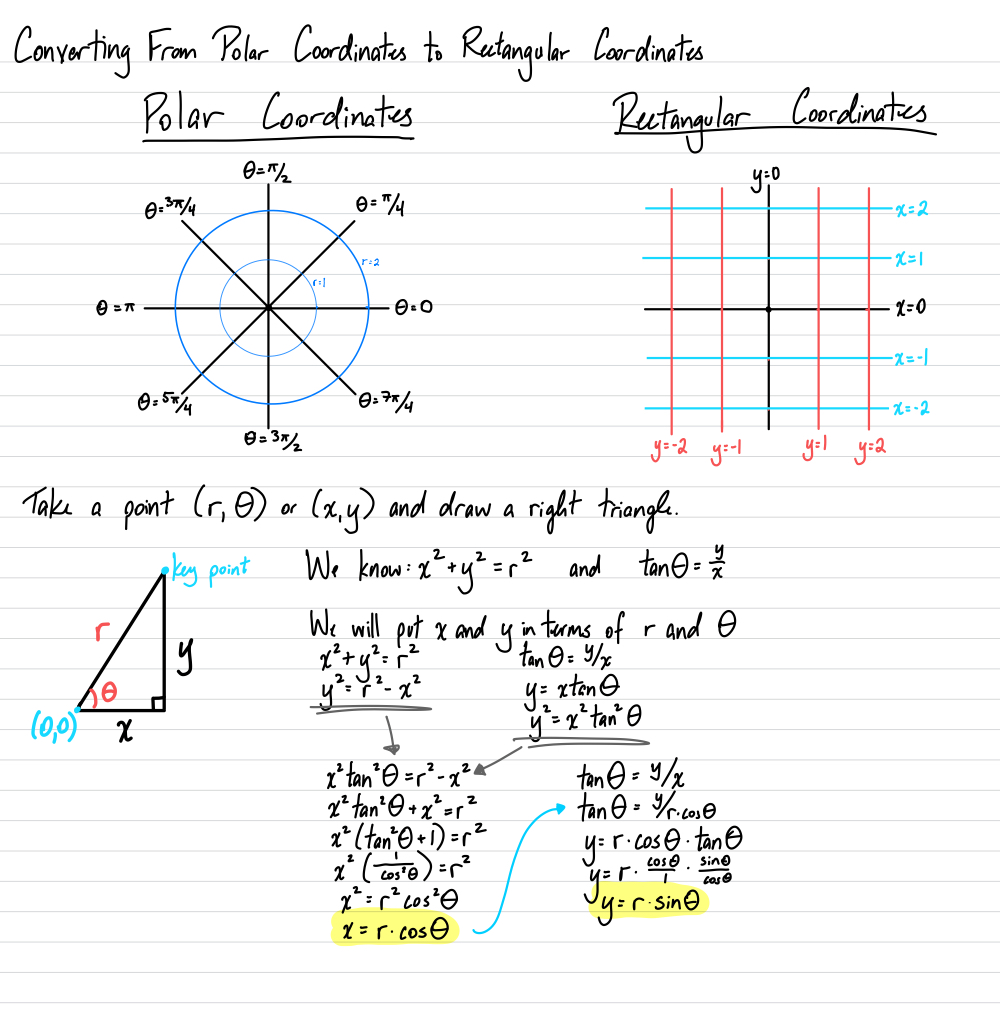 Converting From Polar Coordinates to Rectangular Coordinates
Polar Coordinates
Rectangular Coordinates
θ=π/2
θ=3π/4
θ=π/4
r=2
r=1
θ=π
θ=0
θ=5π/4
θ=7π/4
θ=3π/2
y=0
x=2
x=1
x=0
x=-1
x=-2
y=-2
y=-1
y=1
y=2
Take a point (r, θ) or (x,y) and draw a right triangle.
key point
r
y
θ
(0,0)
x
We know: x²+y²=r² and tanθ=y/x
We will put x and y in terms of r and θ
x²+y²=r²
y²=r²-x²
tanθ=y/x
y=xtanθ
y²=x²tan²θ
x²tan²θ=r²-x²
x²tan²θ+x²=r²
x²(tan²θ+1)=r²
x²(1/cos²θ)=r²
x²=r²cos²θ
x=r·cosθ
tanθ=y/x
tanθ=y/r·cosθ
y=r·cosθ·tanθ
y=r·cosθ/1·sinθ/cosθ
y=r·sinθ